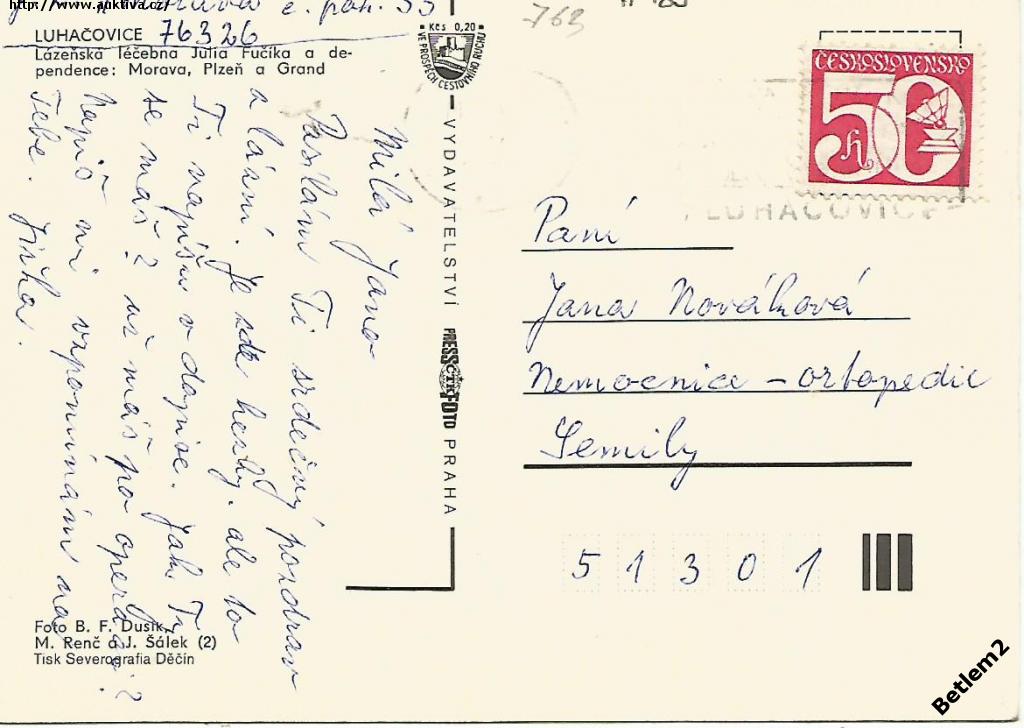 http://www.auktiva.cz/
č. pok. 55
76326
LUHAČOVICE
Lázeňská léčebna Julia Fučíka a de-
pendence: Morava, Plzeň a Grand
Milá Jano
Posílám Ti srdečný pozdrav
a lázní. Je zde hezky. ale to
Ti napíšu v dopise. Jak Ti
se máš? už máš po operaci?
Napiš mi vzpomínám na
Tebe. Jiřka.
Foto B. F. Dušík,
M. Renč a J. Šálek (2)
Tisk Severografia Děčín
Kčs 0,20
VE PROSPĚCH CESTOVNÍHO RUCHU
VYDAVATELSTVÍ PRESSFOTO PRAHA
ČTK
763
ČESKOSLOVENSKO
50 h
LUHAČOVICE
Paní
Jana Nováková
Nemocnice - ortopedie
Semily
51301
Betlem2